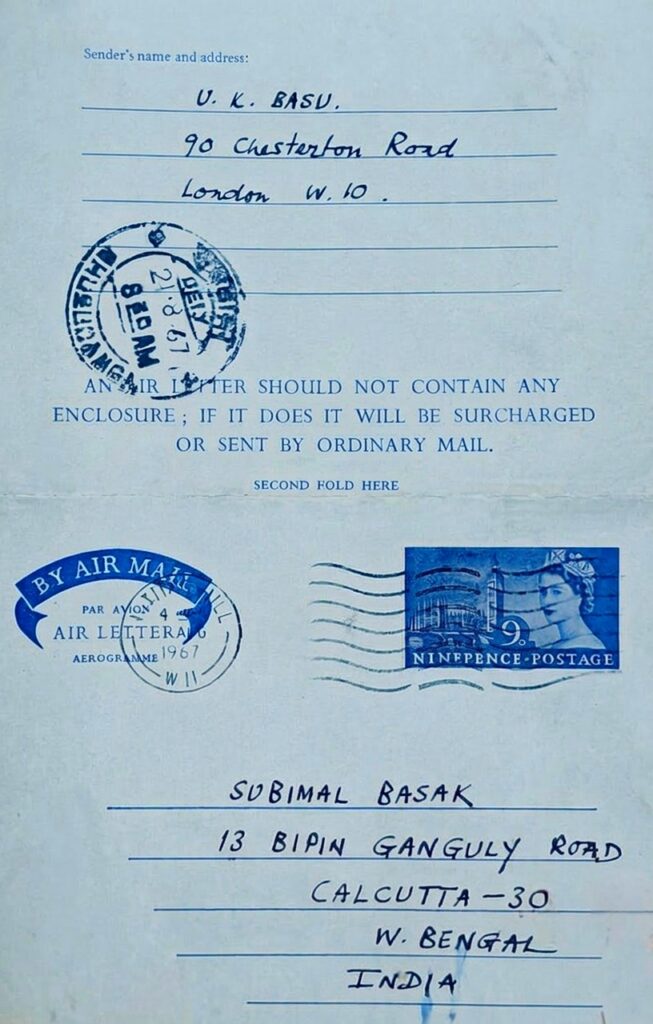 Sender's name and address:
U. K. BASU.
90 Chesterton Road
London W. 10.
DELY
21·8·67
8 30 AM
AN AIR LETTER SHOULD NOT CONTAIN ANY
ENCLOSURE; IF IT DOES IT WILL BE SURCHARGED
OR SENT BY ORDINARY MAIL.
SECOND FOLD HERE
BY AIR MAIL
PAR AVION
AIR LETTER
AEROGRAMME
HILL
4
1967
W 11
9D
NINEPENCE·POSTAGE
SUBIMAL BASAK
13 BIPIN GANGULY ROAD
CALCUTTA - 30
W. BENGAL
INDIA